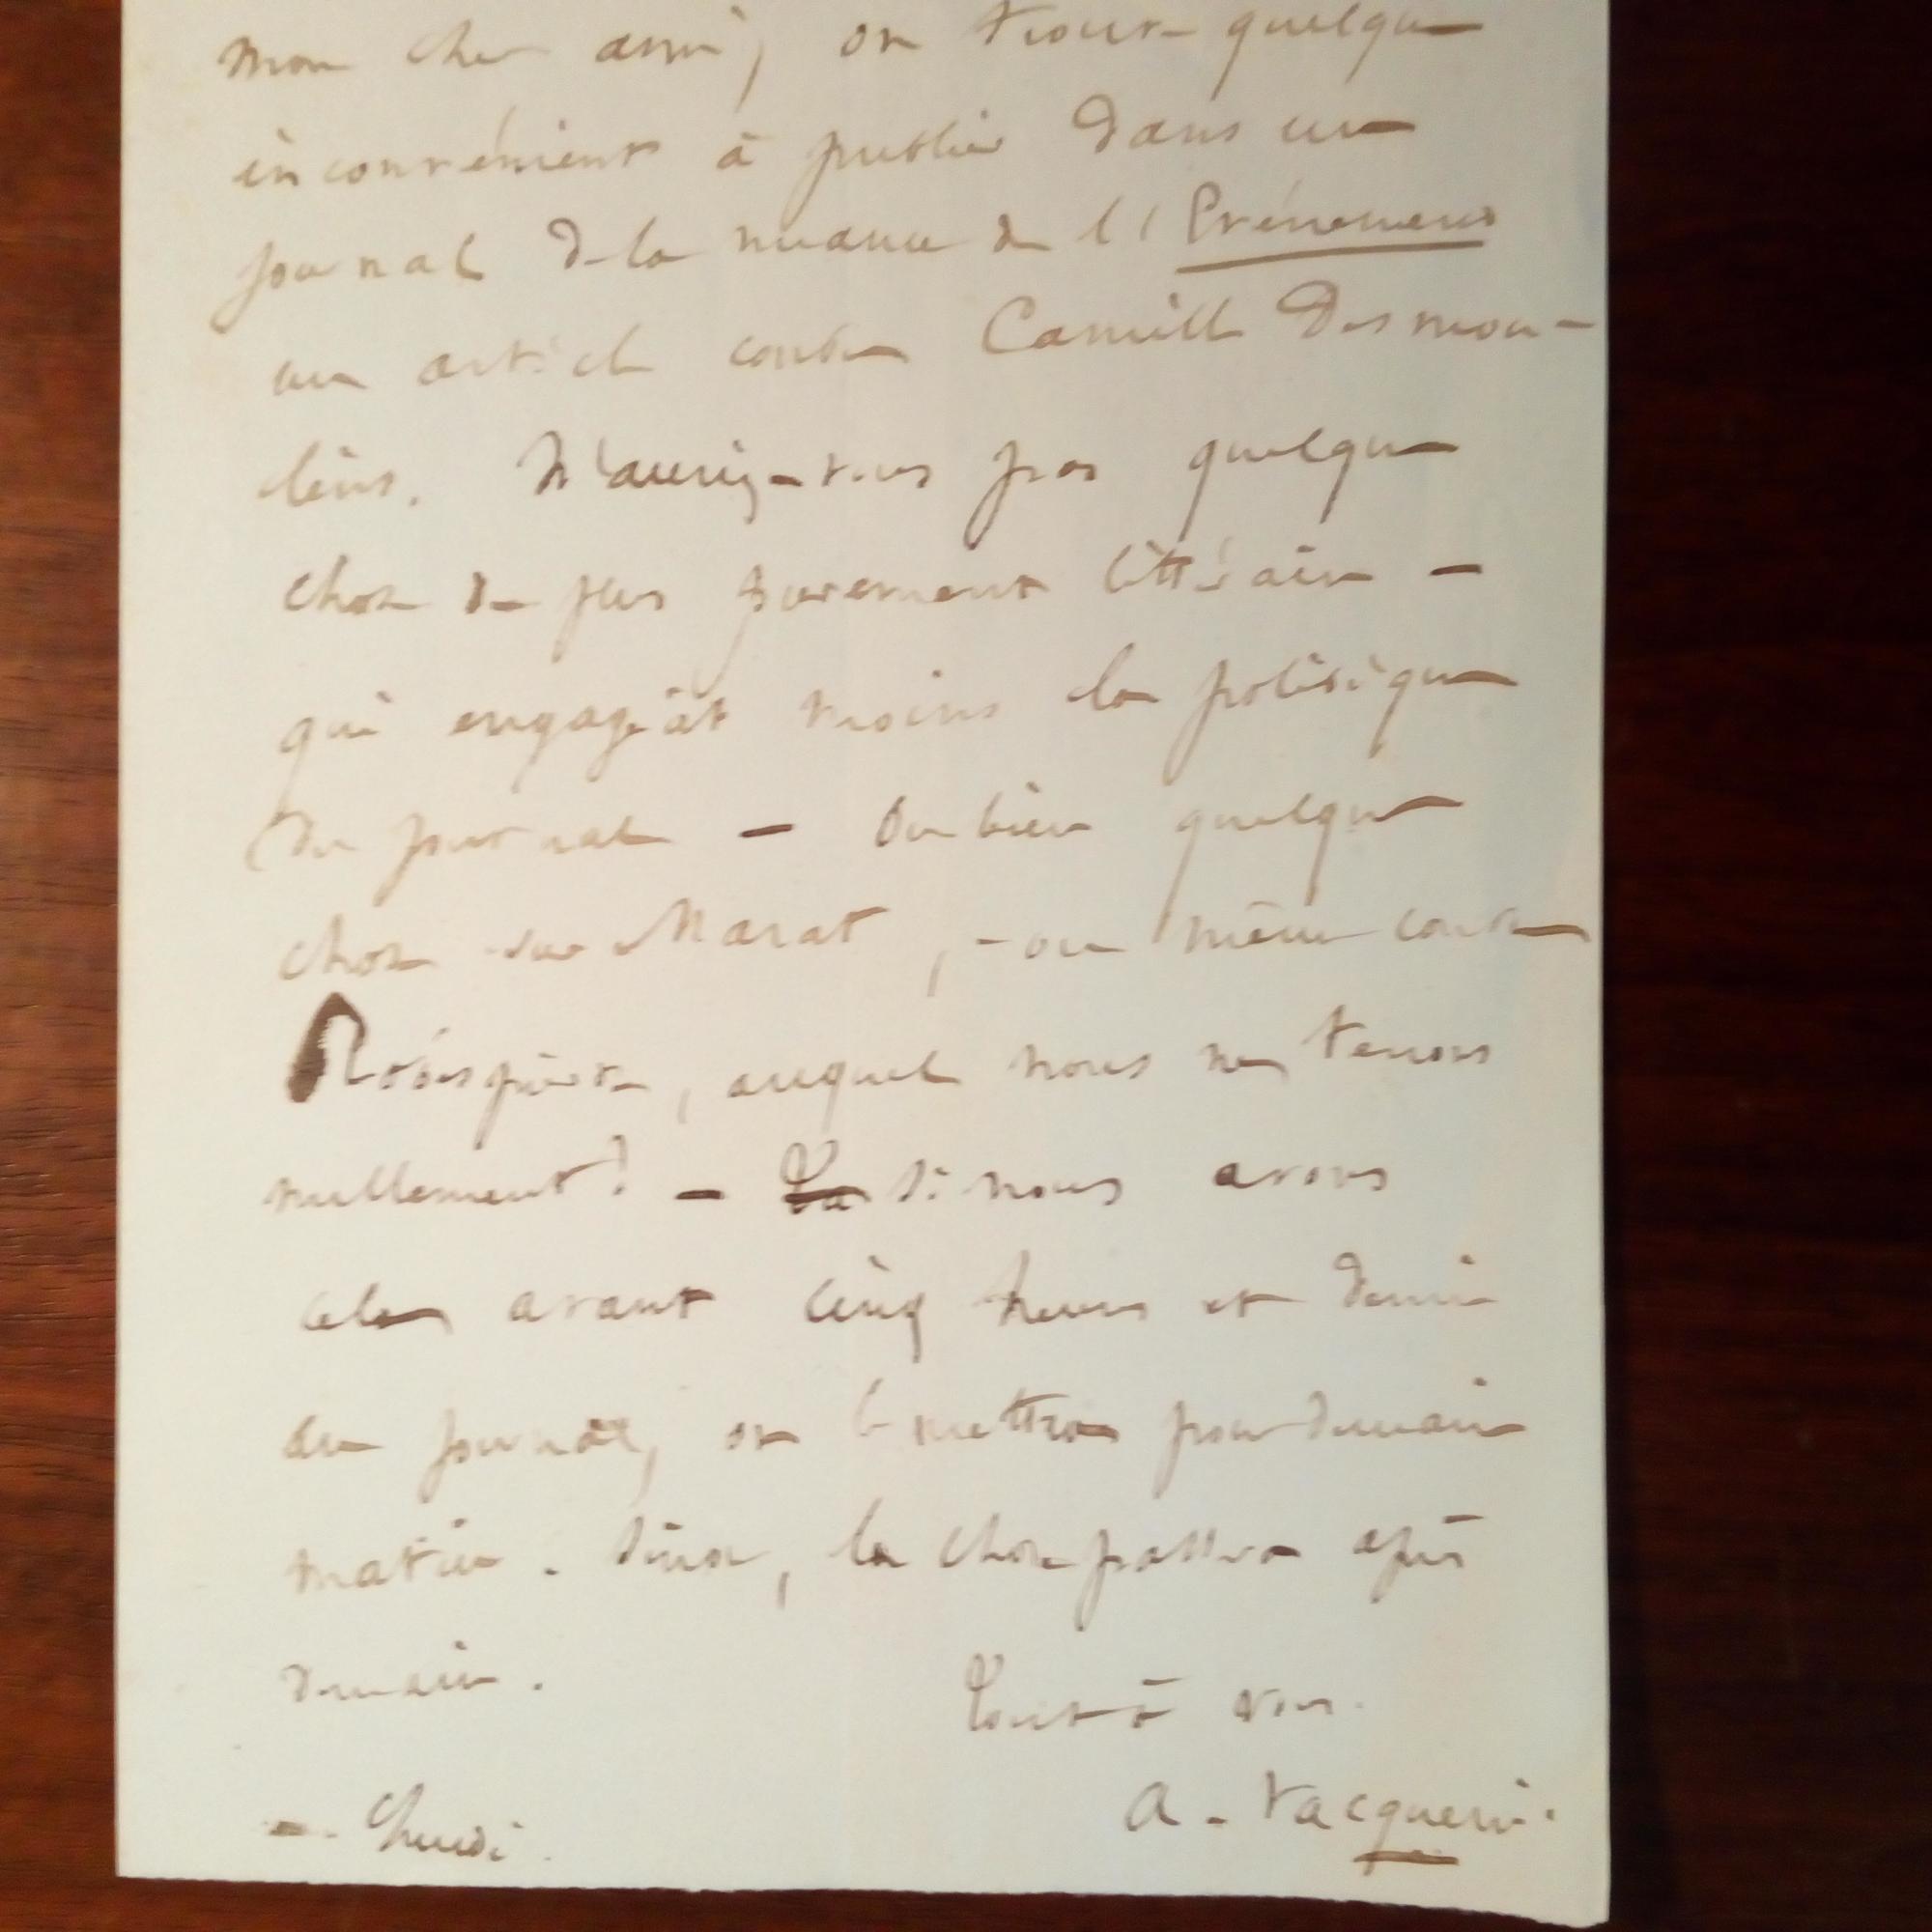 mon cher ami, on trouve quelque
inconvénient à publier dans un
journal de la nuance de l'Evénement
un article contre Camille Desmou-
lins. N'auriez-vous pas quelque
chose de plus purement littéraire -
qui engageât moins la politique
du journal - ou bien quelque
chose sur Marat, - ou même contre
Robespierre, auquel nous ne tenons
nullement? - si nous avons
cela avant cinq heures et demie
au journal, on le mettra pour demain
matin. Sinon, la chose passera après
demain.
Tout à vous.
A. Vacquerie.
- Lundi.